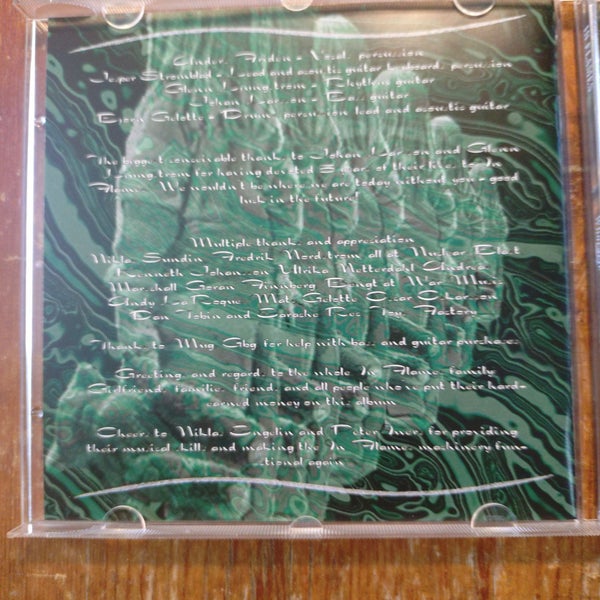 Anders Friden - Vocals, percussion
Jesper Stromblad - Lead and acoustic guitar, keyboards, percussion
Glenn Ljungstrom - Rhythm guitar
Johan Larsson - Bass guitar
Bjorn Gelotte - Drums, percussion, lead and acoustic guitar
The biggest conceivable thanks to Johan Larsson and Glenn
Ljungstrom for having devoted 5 years of their lifes to In
Flames. We wouldn't be where we are today without you - good
luck in the future!
Multiple thanks and appreciation
Niklas Sundin Fredrik Nordstrom all at Nuclear Blast
Kenneth Johansson Ulrika Netterdahl Andrea
Marshall Goran Finnberg Bengt at War Music
Andy LaRoque Mats Gelotte Oscar Carlsson
Dan Tobin and Earache Res Toy Factory
Thanks to Mug Gbg for help with bass and guitar purchases
Greetings and regards to the whole In Flames family
Girlfriends families, friends and all people whove put their hard-
earned money on this album
Cheers to Niklas Engelin and Peter Iwers for providing
their musical skills and making the In Flames machinery func-
tional again